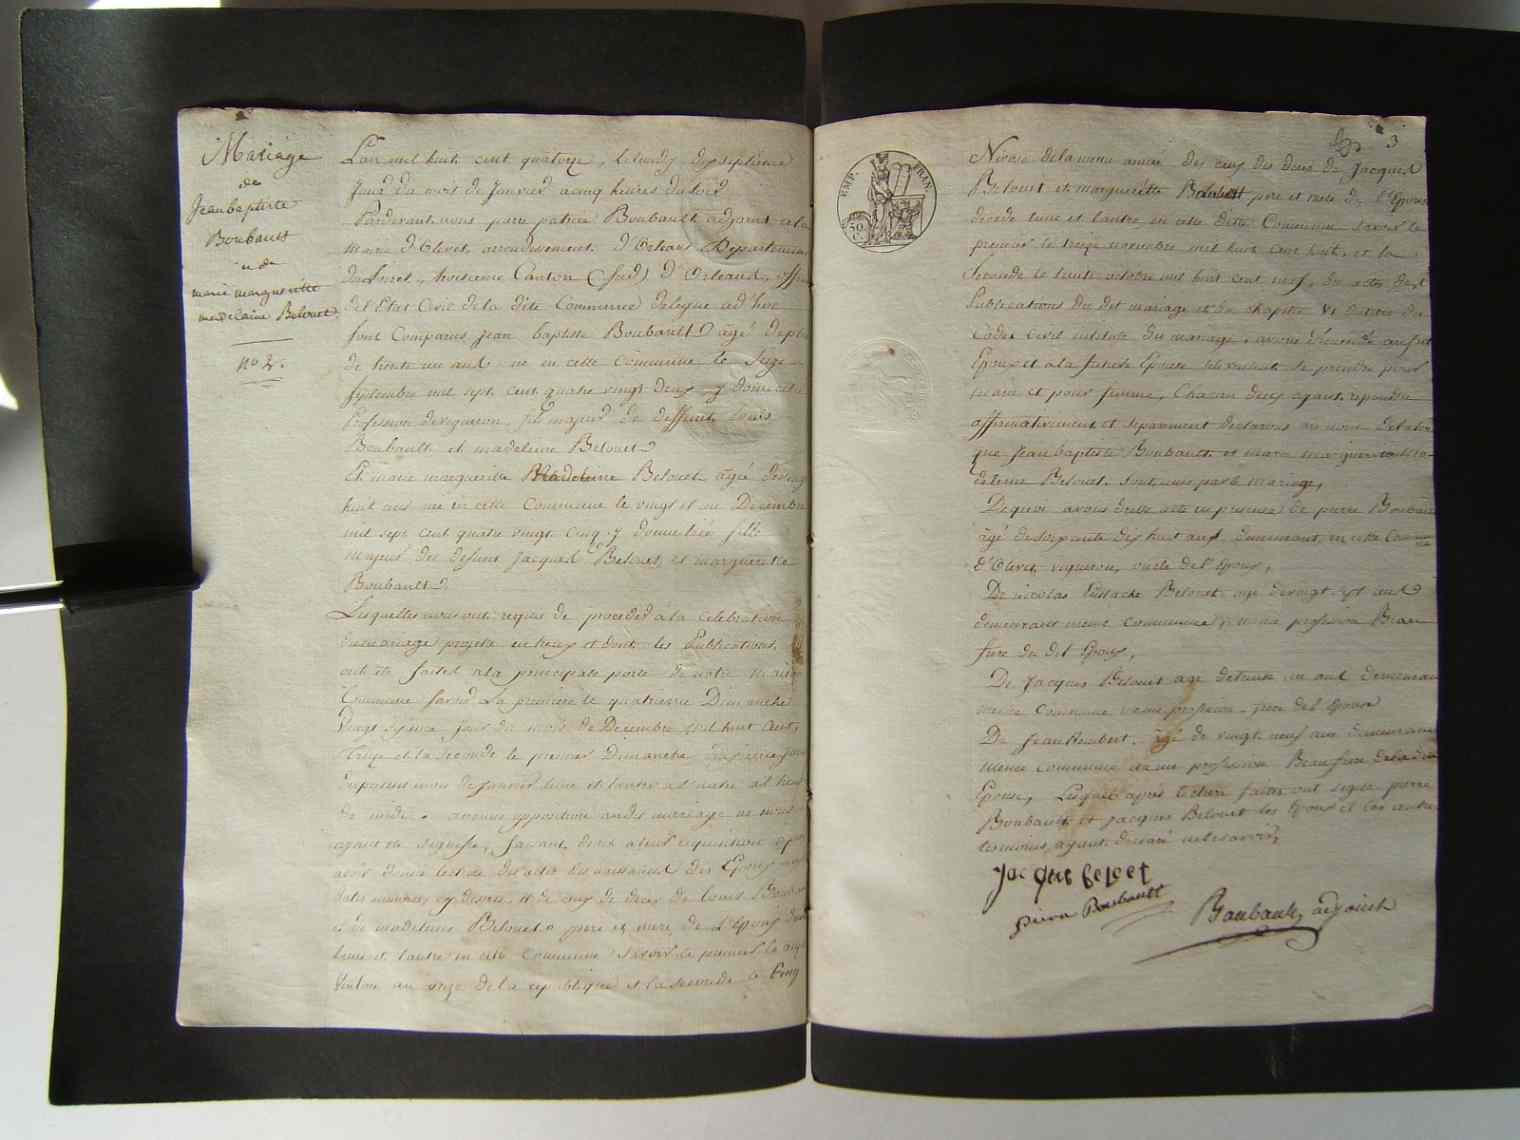 Mariage
de
Jean baptiste
Boubault
Marie margueritte
madelaine Belouet
no 2.
L'an mil huit cent quatorze, le lundy dix septieme
Jour du mois de Janvier a cinq heures du soir
Pardevant nous pierre patrice Boubault adjoint a la
mairie d'Olivet, arrondissement d'Orleans Departement
du Loiret, troisieme Canton (Sud) d'Orleans, offi
del Etat Civil de la dite Commune delegue ad'hoc
Sont Comparus Jean baptiste Boubault agé de plus
de trente un ans né en cette commune le Seize
Septembre mil sept cent quatre vingt Deux y domicilié
Profession de vigneron, fils majeur de deffunt Louis
Boubault et madeleine Belouet
Et marie margueritte Madeleine Belouet agé de vingt
huit ans né en cette Commune le vingt et un Decembre
mil sept cent quatre vingt Cinq y domiciliée fille
majeur des defunt Jacques Belouet, et margueritte
Boubault
Lesquelles nous ont requis de proceder a la celebration
du mariage projetté entreux et dont les Publications
ont été faites a la principale porte de notre maison
Commune savoir La premiere le quatrieme Dimanche
Vingt Sixieme Jour du mois de Decembre mil huit Cent
Treize et la seconde le premier Dimanche
de midi aucune opposition audit mariage ne nous
ayant été signifié, faisant droit a leur requisition apres
avoir donné lecture des actes de naissances des Epoux
et de ceux de deces de Louis Boubault
et de madeleine Belouet pere et mere de L'Epoux
lune et lautre en cette Commune Savoir le premier le
an onze de la republique et la seconde le Cinq
3
EMP. FRAN.
50 C.
Nivose de la meme année des ceux des deces de Jacques
Belouet et margueritte Boubault pere et mere de l'Epouse
decede lune et lautre en cette ditte Commune Savoir le
premier le treize novembre mil huit cent huit, et la
Seconde le trente octobre mil huit cent neuf, des actes de
Publications du dit mariage et du chapitre VI du titre du
Code Civil intitulé du mariage, avons demandé au futur
Epoux et a la future Epouse sils veulent se prendre pour
mari et pour femme, Chacun deux ayant repondu
affirmativement et separement declarons au nom de la loi
que Jean baptiste Boubault et marie margueritte Ma-
deleine Belouet sont unis par le mariage,
De quoi avons dressé acte en presence de pierre Boubault
âgé de soixante dix huit ans, demeurant en cette Commune
d'Olivet, vigneron, oncle de l'Epoux,
De nicolas Eustache Belouet agé de vingt sept ans
demeurant meme commune meme profession Beau
frere du dit Epoux,
De Jacques Belouet agé de trente un ans demeurant
meme commune meme profession frere del Epouse
De Jean Humbert agé de vingt neuf ans demeurant
meme commune meme profession Beau frere de la dite
Epouse, Lesquels apres lecture faites ont signé pierre
Boubault et Jacques Belouet les Epoux et les autres
temoins, ayant declaré ne le savoir,
Jacque belouet
pierre Boubault
Boubault, adjoint